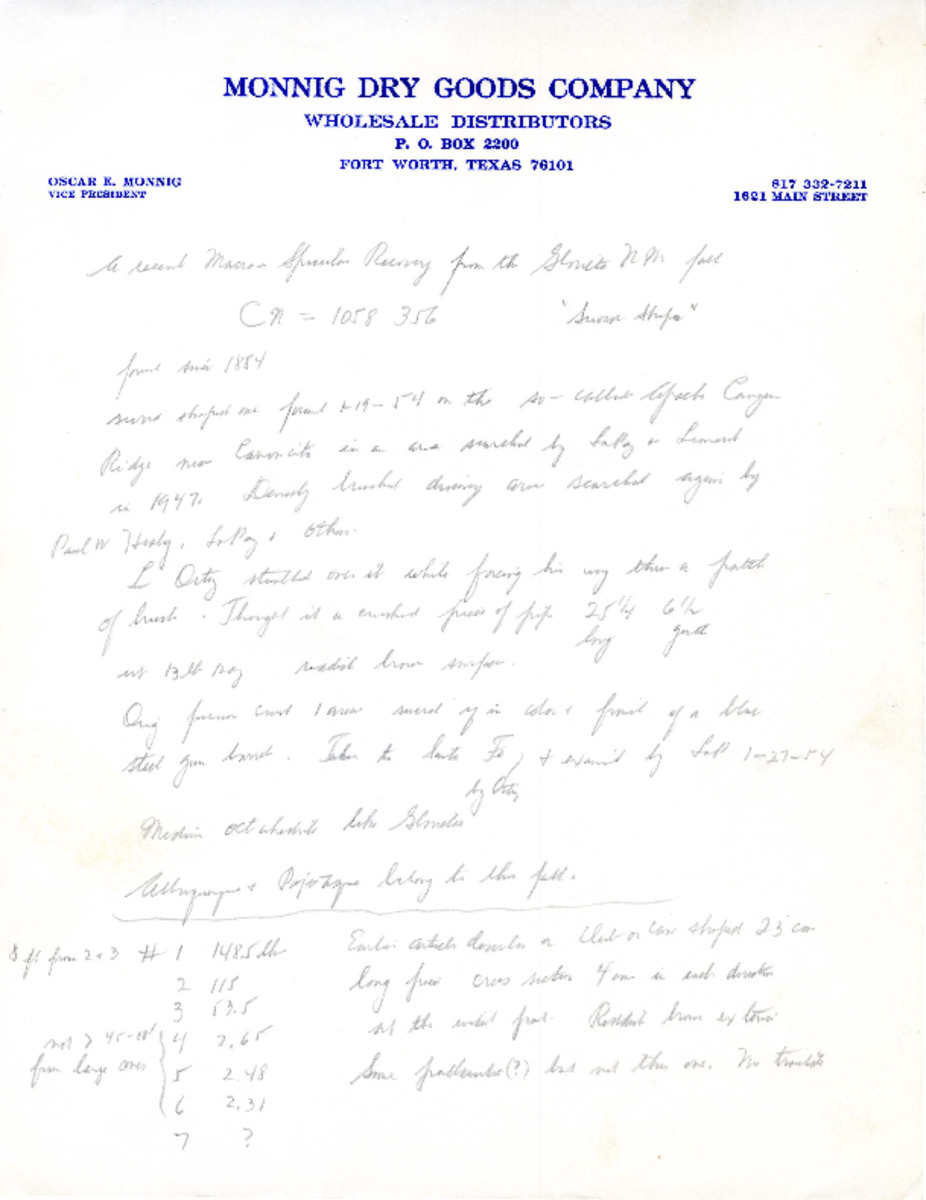 MONNIG DRY GOODS COMPANY
WHOLESALE DISTRIBUTORS
P. O. BOX 2200
FORT WORTH, TEXAS 76101
OSCAR E. MONNIG
VICE PRESIDENT
817 332-7211
1621 MAIN STREET
A recent Recovery from the Glorieta N M fall
CN = 1058 356 "Sword Shape"
found since 1884
sword shaped one found 1-19-54 on the so-called Apache Canyon
Ridge near Canoncito in an area searched by LaPaz & Leonard
in 1947. Densely brushed area searched again by
Paul W Healy, LaPaz & others.
L Ortiz stumbled over it while forcing his way thru a patch
of brush. Thought it a crushed piece of pipe 25 1/4 long 6 1/2 girth
wt 13 lb reddish brown surface.
Orig fusion crust in color & of a blue
steel gun barrel. Taken to Santa Fe, & examined by LaP 1-27-54
by Ortiz
Medium octahedrite like Glorieta
Albuquerque & Pojoaque belong to this fall.
8 ft from 2 & 3 # 1 148.5 lb
2 115
3 53.5
not > 45-
from large ones
4 2.65
5 2.48
6 2.31
7 ?
Earlier article describes a club or shaped 23 cm
long piece cross section 4 cm in each direction
at the widest part. Reddish brown exterior
Some (?) but not this one. No